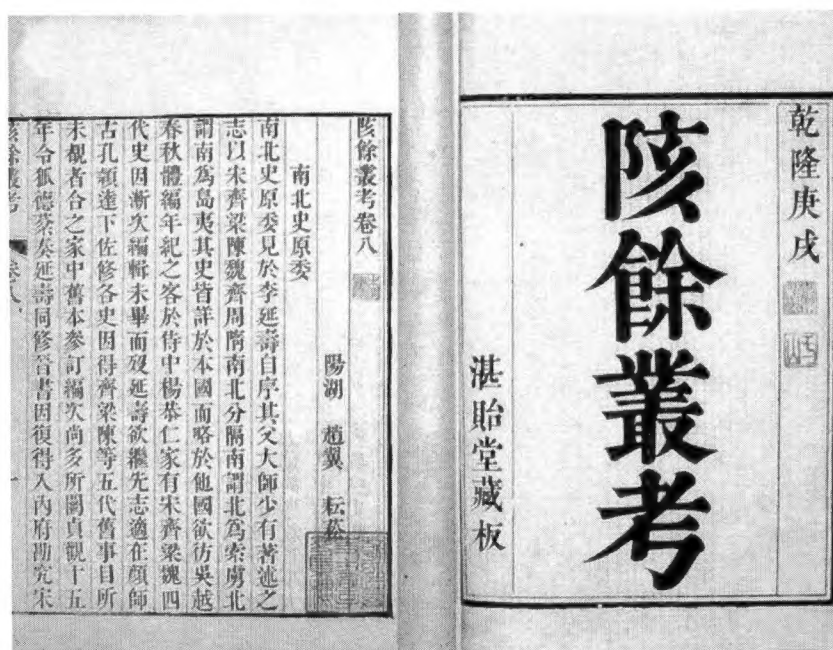 乾隆庚戌
陔餘叢考
湛貽堂藏板
陔餘叢考卷八
陽湖 趙翼 耘菘
南北史原委
南北史原委見於李延壽自序其父大師少有著述之
志以宋齊梁陳魏齊周隋南北分隔南謂北爲索虜北
謂南爲島夷其史皆詳於本國而略於他國欲彷吳越
春秋體編年紀之客於侍中楊恭仁家有宋齊梁魏四
代史因漸次編輯未畢而歿延壽欲繼先志適在顏師
古孔穎達下佐修各史因得齊梁陳等五代舊事目所
未覩者合之家中舊本參訂編次尚多所闕貞觀十五
年令狐德棻奏延壽同修晉書因復得入內府勘究宋
陔餘叢考
卷八
一